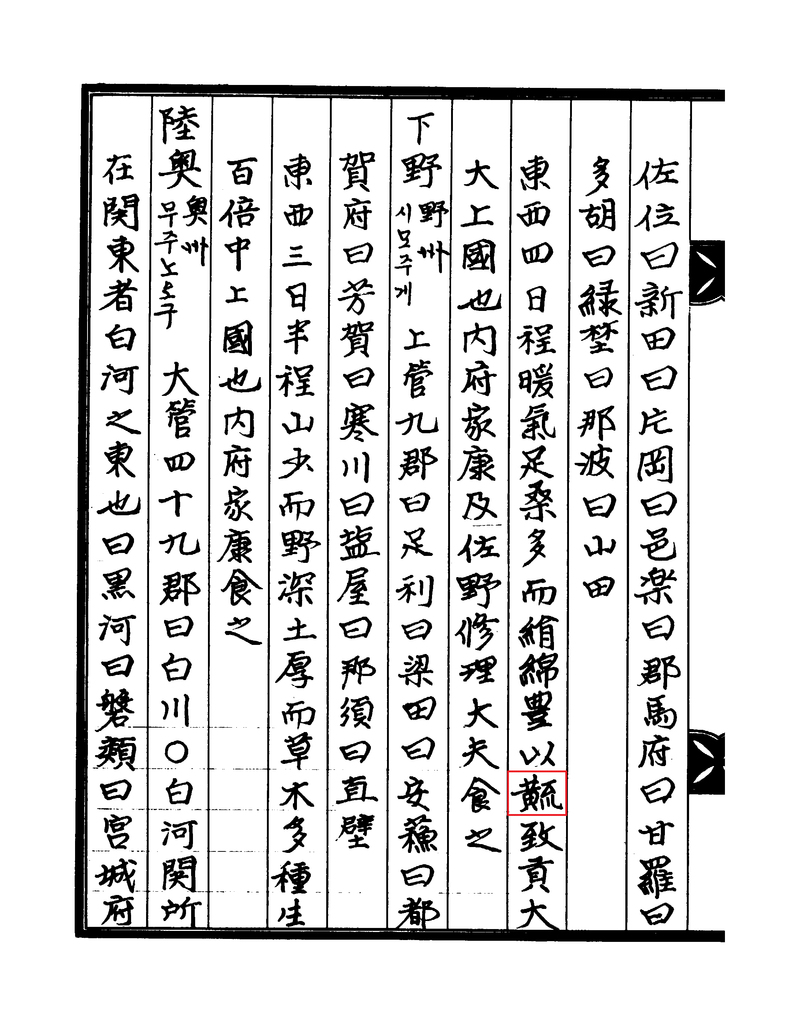 佐位曰新田曰片岡曰邑楽曰郡馬府曰甘羅曰
多胡曰緑埜曰那波曰山田
東西四日程暖氣足桑多而絹綿豊以致貢大
大上國也内府家康及佐野修理大夫食之
下野 野州 시모주게 上管九郡曰足利曰梁田曰安蘓曰都
賀府曰芳賀曰寒川曰塩屋曰那須曰直壁
東西三日半程山少而野深土厚而草木多種生
百倍中上國也内府家康食之
陸奥 奥州 무주노오구 大管四十九郡曰白川〇白河関所
在関東者白河之東也曰黒河曰磐類曰宮城府